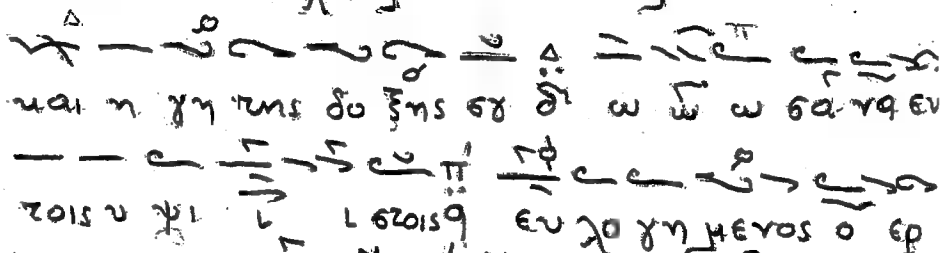 και η γη της δο ξης σȣ ω ω ω σα να εν
τοις υ ψι ι ι στοις ευ λο γη μενος ο ερ